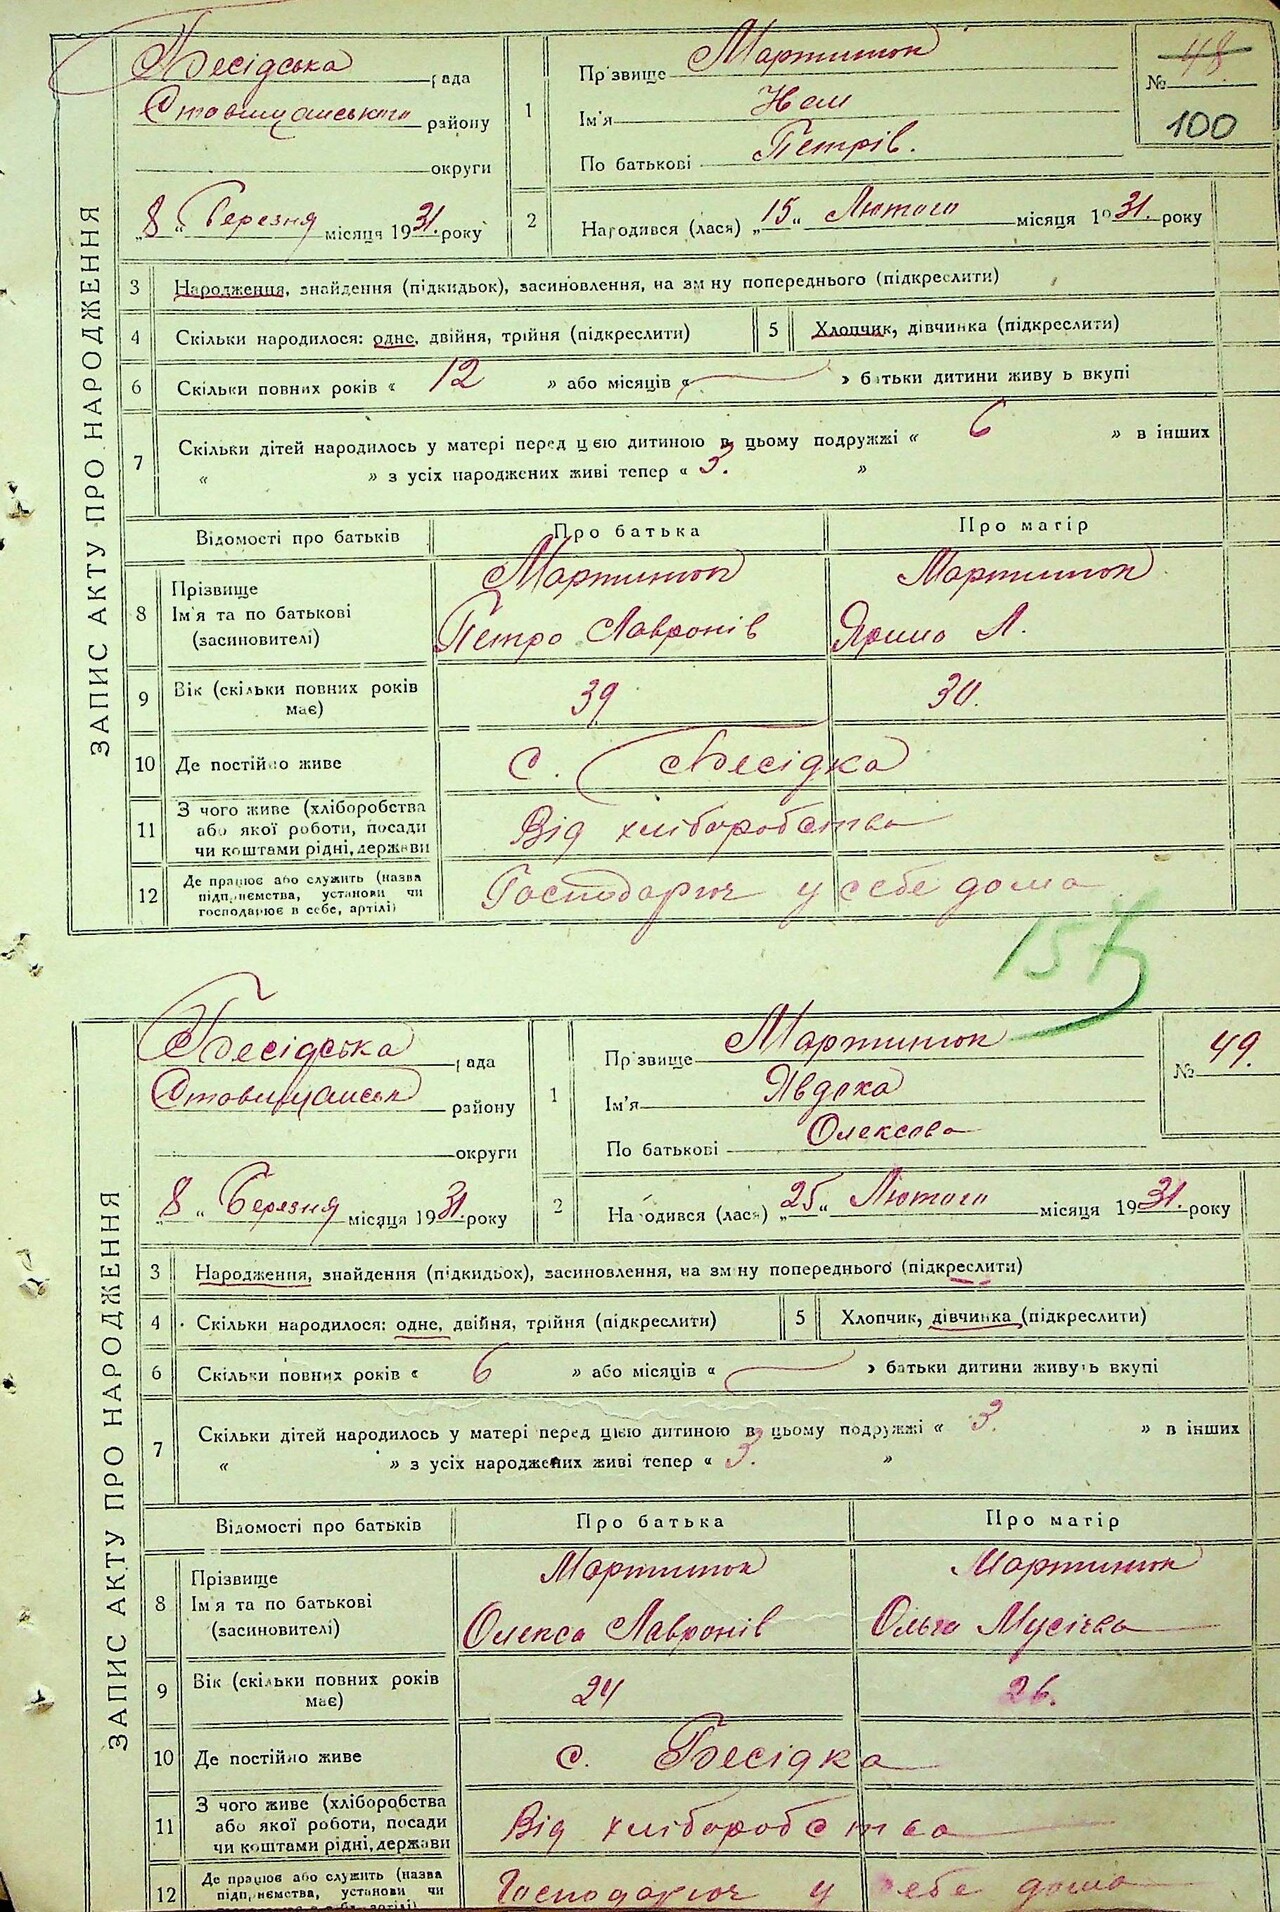 ЗАПИС АКТУ ПРО НАРОДЖЕННЯ
Бесідська рада
Ставищанського району
округи
„8“ Березня місяця 1931. року
1
Прізвище Мартинюк
Ім'я
По батькові Петрів.
№ 48
100
2
Народився (лася) „15“ Лютого місяця 1931. року
3 Народження, знайдення (підкидьок), засиновлення, на зміну попереднього (підкреслити)
4 Скільки народилося: одне, двійня, трійня (підкреслити)
5 Хлопчик, дівчинка (підкреслити)
6 Скільки повних років « 12 » або місяців « » батьки дитини живуть вкупі
7 Скільки дітей народилось у матері перед цією дитиною в цьому подружжі « 6 » в інших
« » з усіх народжених живі тепер « 3. »
Відомості про батьків Про батька Про матір
8 Прізвище
Ім'я та по батькові
(засиновителі)
Мартинюк
Петро Лавронів
Мартинюк
Ярина Л.
9 Вік (скільки повних років має) 39 30.
10 Де постійно живе с. Бесідка
11 З чого живе (хліборобства
або якої роботи, посади
чи коштами рідні, держави
Від хліборобства
12 Де працює або служить (назва
підприємства, установи чи
господарює в себе, артілі)
Господарює у себе дома
ЗАПИС АКТУ ПРО НАРОДЖЕННЯ
Бесідська рада
Ставищанськ району
округи
„8“ Березня місяця 1931. року
1
Прізвище Мартинюк
Ім'я Явдоха
По батькові Олексова
№ 49.
2
Народився (лася) „25“ Лютого місяця 1931. року
3 Народження, знайдення (підкидьок), засиновлення, на зміну попереднього (підкреслити)
4 Скільки народилося: одне, двійня, трійня (підкреслити)
5 Хлопчик, дівчинка (підкреслити)
6 Скільки повних років « 6 » або місяців « » батьки дитини живуть вкупі
7 Скільки дітей народилось у матері перед цією дитиною в цьому подружжі « 3. » в інших
« » з усіх народжених живі тепер « 3. »
Відомості про батьків Про батька Про матір
8 Прізвище
Ім'я та по батькові
(засиновителі)
Мартинюк
Олекса Лавронів
Мартинюк
Ольга Мусієва
9 Вік (скільки повних років має) 24 26.
10 Де постійно живе с. Бесідка
11 З чого живе (хліборобства
або якої роботи, посади
чи коштами рідні, держави
Від хліборобства
12 Де працює або служить (назва
підприємства, установи чи
Господарює у себе дома